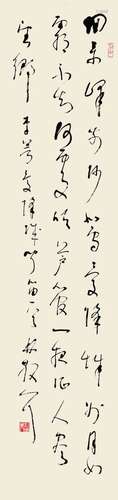 回樂峰前沙似雪受降城外月如
霜不知何處吹蘆管一夜征人盡
望鄉 李益受降城聞笛一首 林散耳